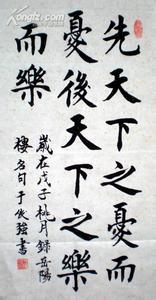 先天下之憂而
憂後天下之樂
而樂
歲在戊子桃月錄岳陽
樓名句于俊強書